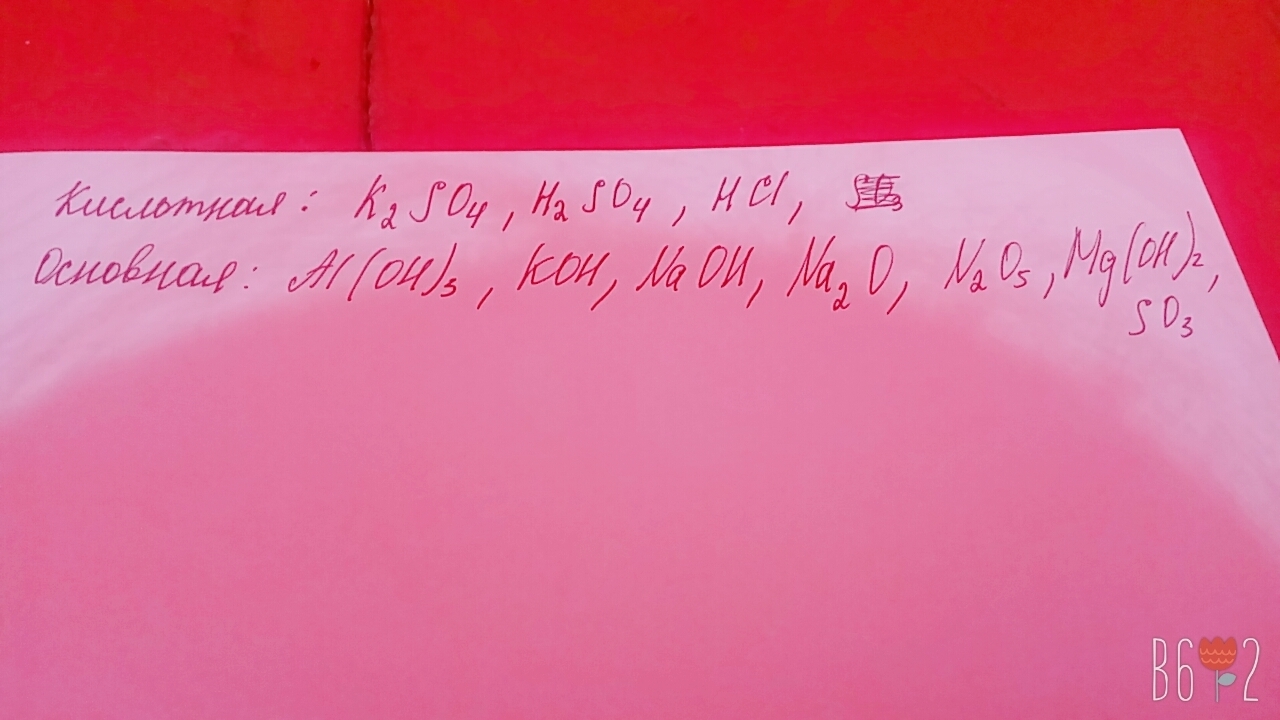 Кислотная: K₂SO₄, H₂SO₄, HCl,
Основная: Al(OH)₃, KOH, NaOH, Na₂O, N₂O₅, Mg(OH)₂,
SO₃
B6 2